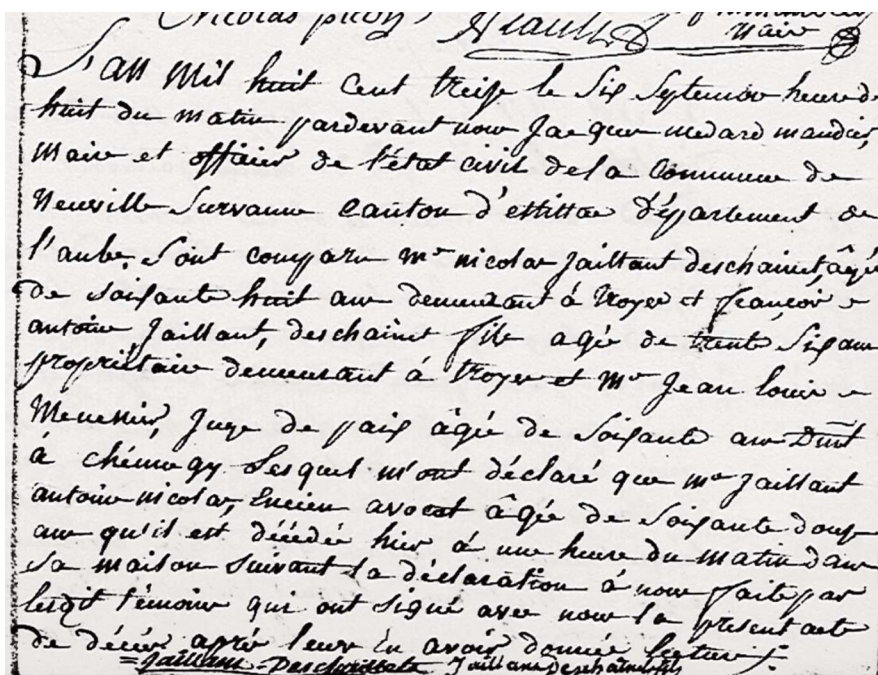 Nicolas picon
Maire
L'an Mil huit Cent treise le Six Septembre heure de
huit du matin pardevant nous Jacques medard
Maire et officier de l'état civil de la Commune de
Neuville Survanne Canton d'estissac département de
l'aube, Sont comparu mr nicolas Jaillant deschainets, âgé
de soixante huit ans demeurant à troyes et françois
antoine Jaillant, deschainet fils agée de trente Six ans
propriétaire demeurant à troyes et Mr Jean louis
Juge de paix âgée de Soixante ans Dmt
à chémegy Lesquel m'ont déclaré que mr Jaillant
antoine nicolas, Encien avocat âgée de Soixante douze
ans qu'il est décédée hier à une heure du matin dans
sa maison suivant la déclaration à nous faite par
lesdit témoins qui ont signé avec nous le present acte
de décès après leurs En avoir donnée lecture
Jaillant Deschainets Jaillant Deschainet fils